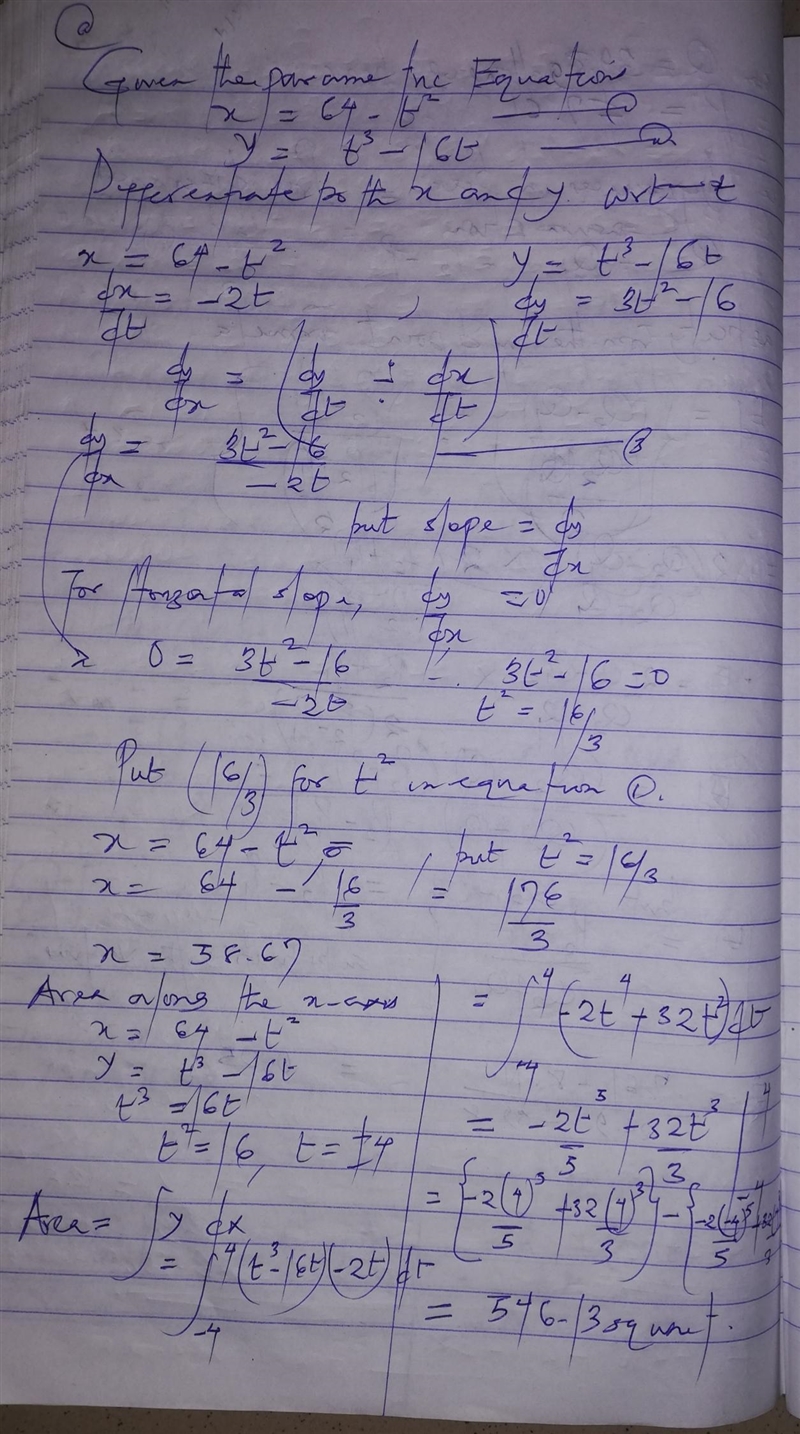 (a)
Given the parametric Equation
x = 64 - t² —— (1)
y = t³ - 16t —— (2)
Differentiate both x and y wrt t
x = 64 - t²    y = t³ - 16t
dx/dt = -2t ,    dy/dt = 3t² - 16
dy/dx = (dy/dt ÷ dx/dt)
dy/dx = (3t² - 16)/(-2t) —— (3)
but slope = dy/dx
For Horizontal slope, dy/dx = 0
0 = (3t² - 16)/(-2t)  ∴ 3t² - 16 = 0
t² = 16/3
Put (16/3) for t² in equation (1).
x = 64 - t² = , but t² = 16/3
x = 64 - 16/3 = 176/3
x = 58.67
Area along the x-axis
x = 64 - t²
y = t³ - 16t
t³ = 16t
t² = 16, t = ±4
Area = ∫ y dx
= ∫₋₄⁴ (t³ - 16t)(-2t) dt
= ∫₋₄⁴ (-2t⁴ + 32t²) dt
= -2t⁵/5 + 32t³/3 |⁴₋₄
= {-2(4)⁵/5 + 32(4)³/3} - {-2(-4)⁵/5 + 32
= 546.13 square